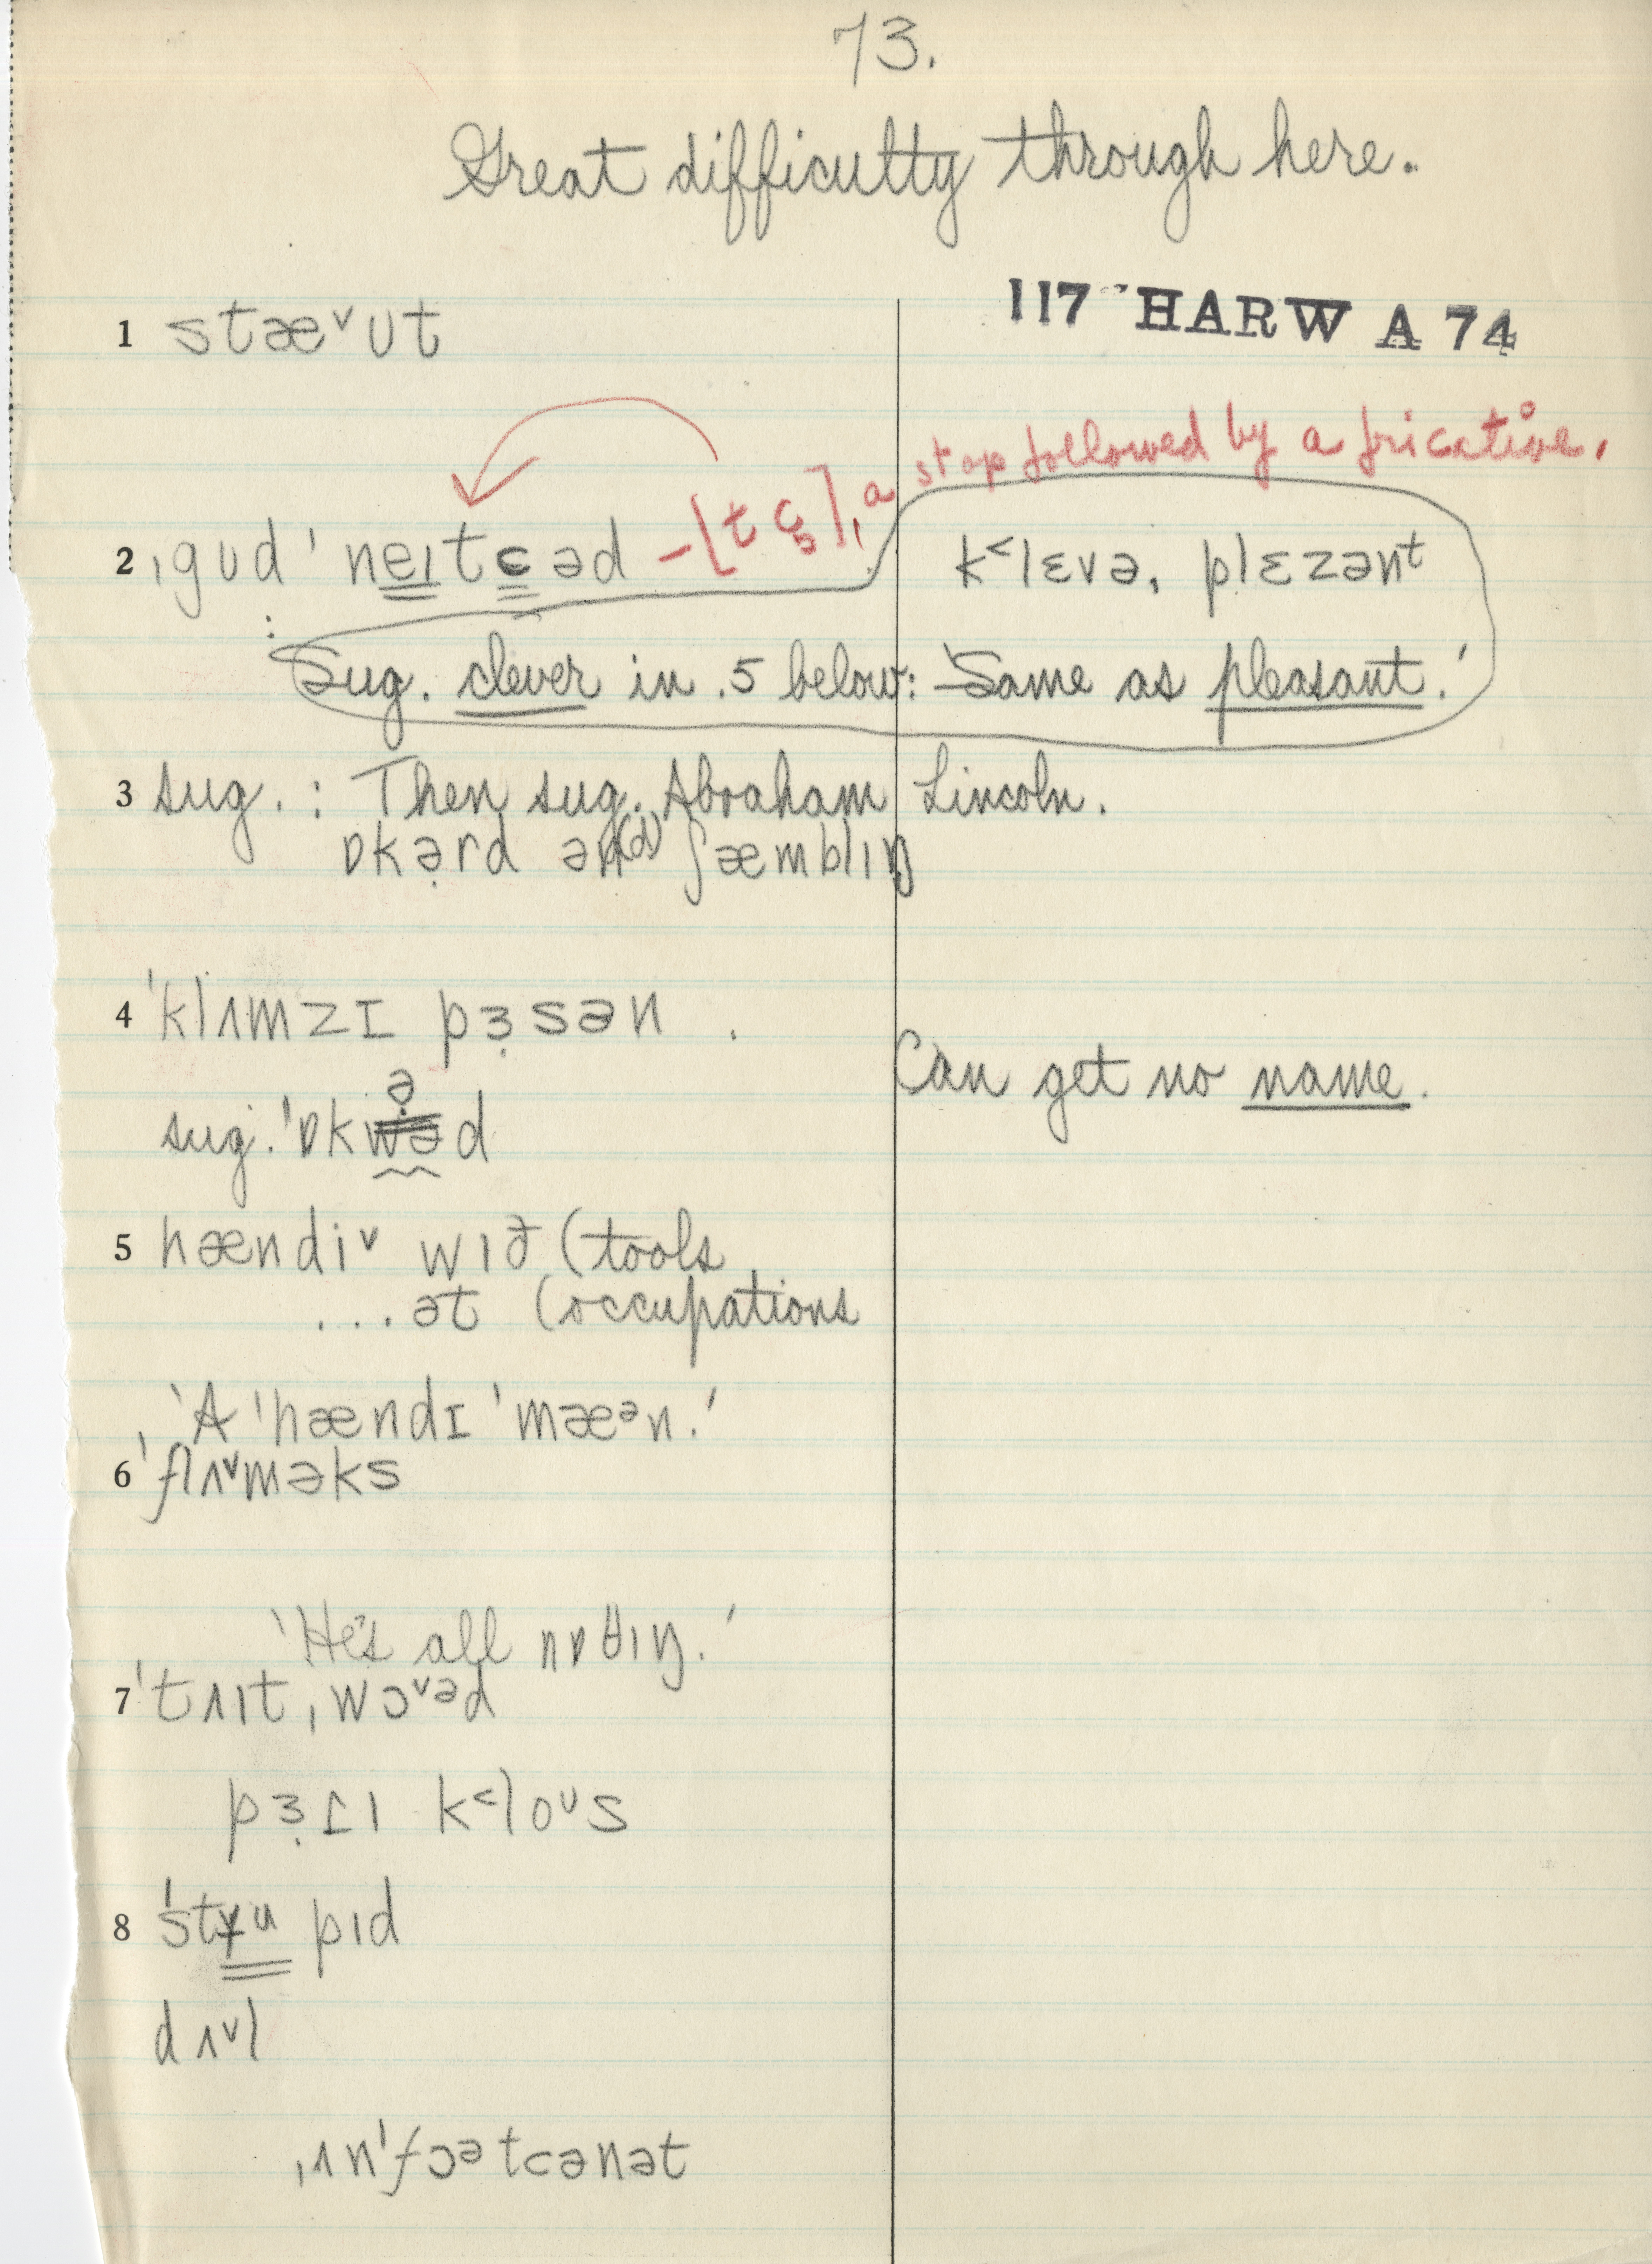 73.
Great difficulty through here.
117 HARW A 74
1 stæ˅ʊt
a stop followed by a fricative.
2 ˌgʊd ˈneɪtcəd –[t ɕ],
kʿlɛvə, plɛzənᵗ
Sug. clever in .5 below: 'Same as pleasant.'
3 sug. : Then sug. Abraham Lincoln.
ɒkə̣rd ən(d) ʃæmblɪŋ
4 ˈklʌmzɪ pɜ̣sən .
Can get no name.
ə̣
sug. ˈɒkwəd
5 hændi˅ wɪð (tools
...ət (occupations
'A ˈhændɪ ˈmæᵊn.'
6 ˈflʌ˅məks
'He's all nɒθɪŋ.'
7 ˈtʌɪtˌwɔ˅ᵊd
pɜ̣ɾɪ kʿloᶷs
8 ˈstyu pɪd
dʌ˅l
ˌʌnˈfɔᵊtcənət